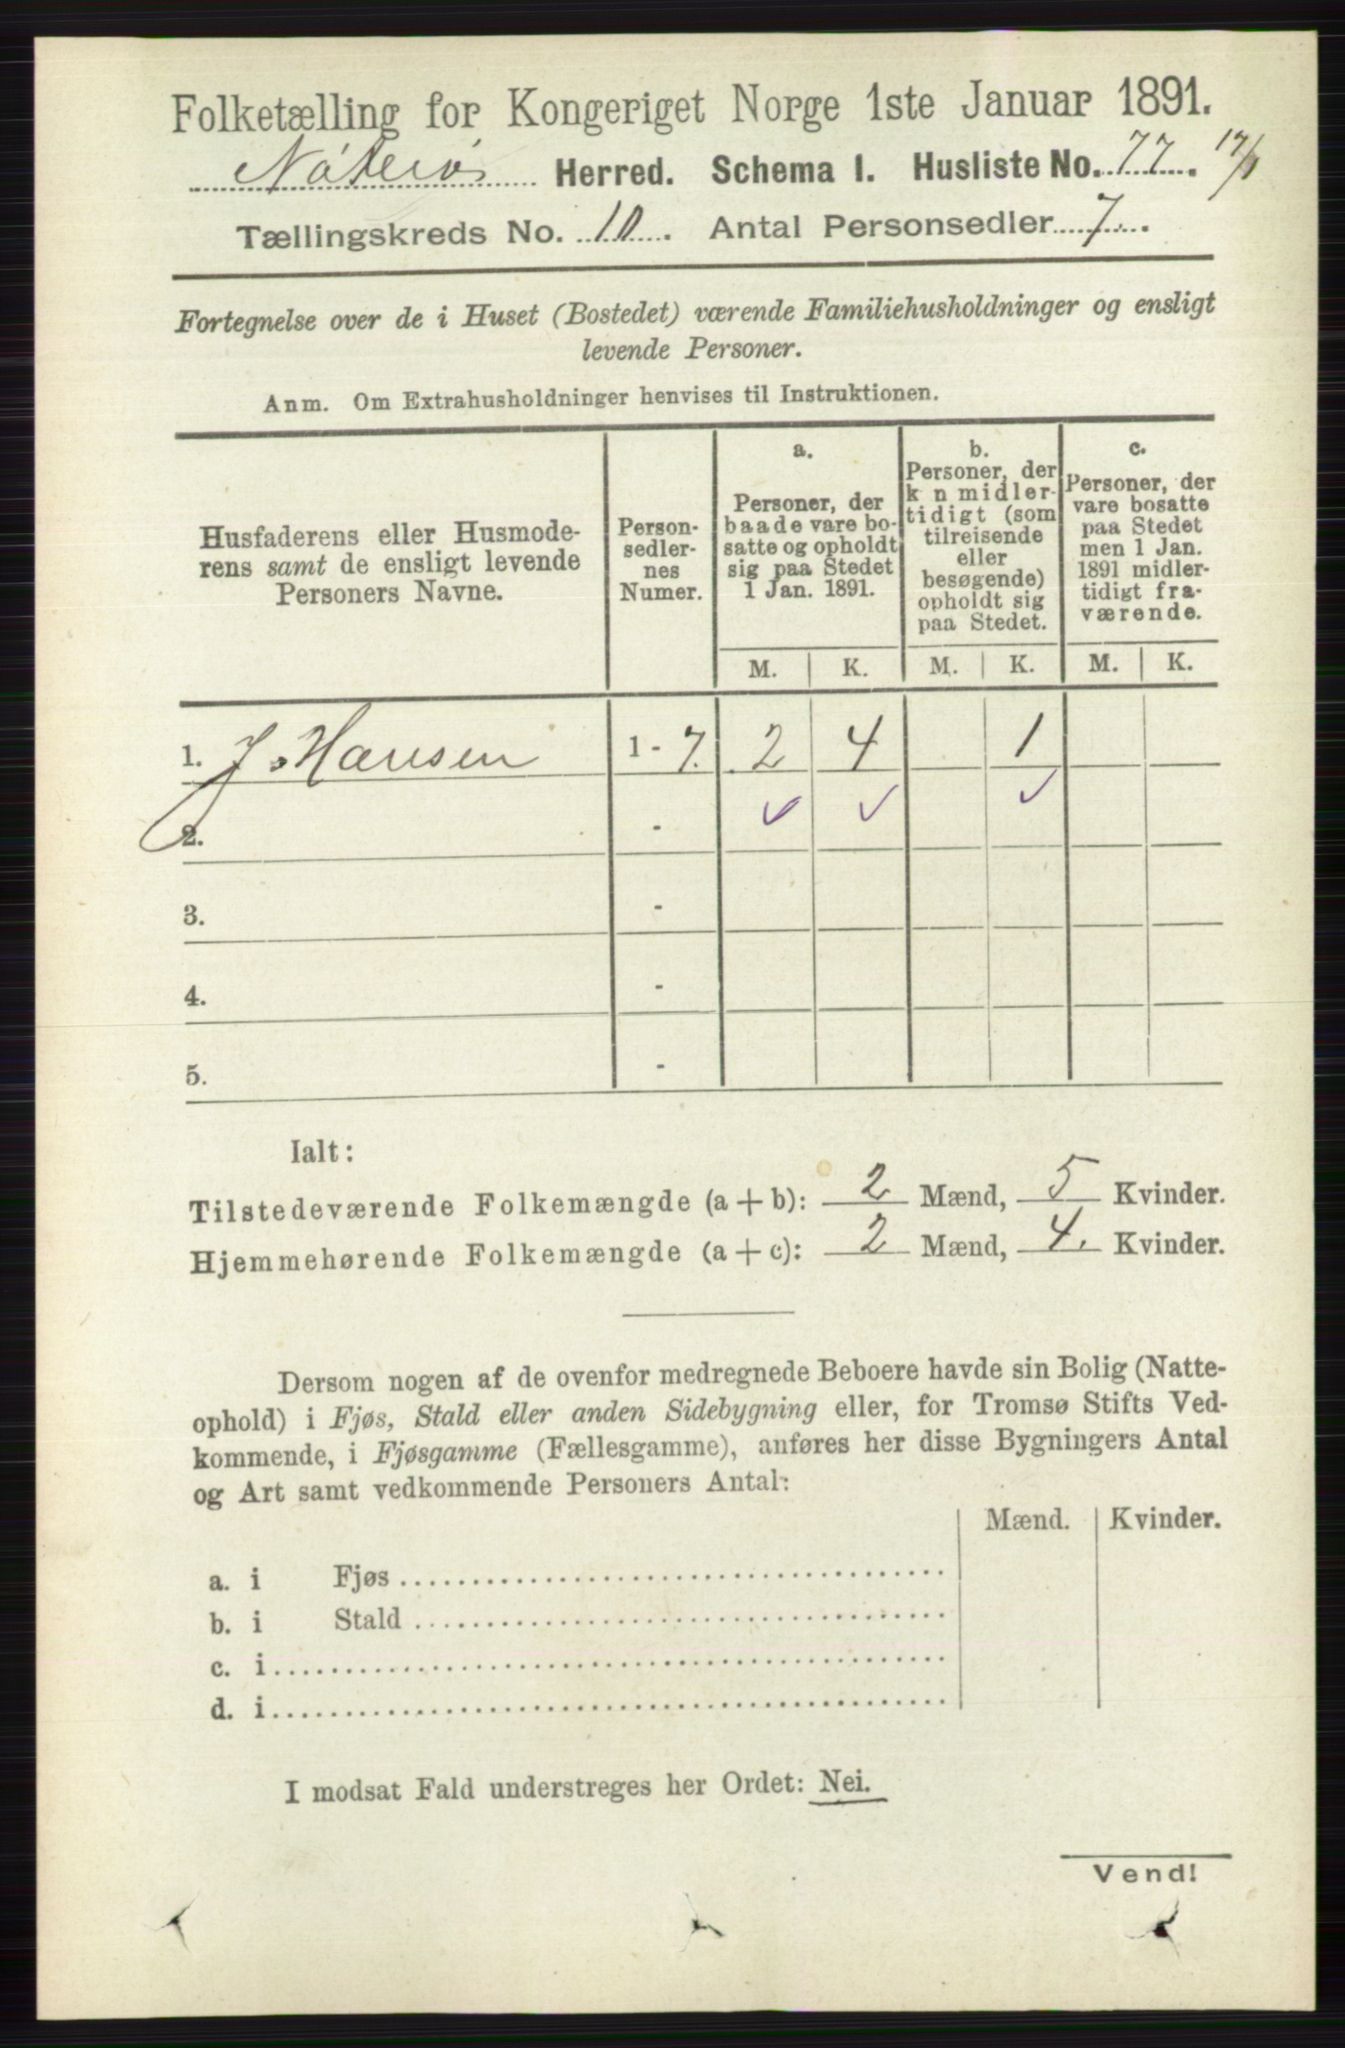 Folketælling for Kongeriget Norge 1ste Januar 1891.
Nøterø Herred. Schema I. Husliste No. 77.
Tællingskreds No. 10. Antal Personsedler 7.
Fortegnelse over de i Huset (Bostedet) værende Familiehusholdninger og ensligt
levende Personer.
Anm. Om Extrahusholdninger henvises til Instruktionen.
Husfaderens eller Husmode-
rens samt de ensligt levende
Personers Navne.
Person-
sedler-
nes
Numer.
a.
Personer, der
baade vare bo-
satte og opholdt
sig paa Stedet
1 Jan. 1891.
b.
Personer, der
k n midler-
tidigt (som
tilreisende
eller
besøgende)
opholdt sig
paa Stedet.
c.
Personer, der
vare bosatte
paa Stedet
men 1 Jan.
1891 midler-
tidigt fra-
værende.
M. K. M. K. M. K.
1. J. Hansen 1 - 7. 2 4 1
2. - ✓ ✓ ✓
3. -
4. -
5. -
Ialt:
Tilstedeværende Folkemængde (a + b): 2 Mænd, 5 Kvinder.
Hjemmehørende Folkemængde (a + c): 2 Mænd, 4. Kvinder.
Dersom nogen af de ovenfor medregnede Beboere havde sin Bolig (Natte-
ophold) i Fjøs, Stald eller anden Sidebygning eller, for Tromsø Stifts Ved-
kommende, i Fjøsgamme (Fællesgamme), anføres her disse Bygningers Antal
og Art samt vedkommende Personers Antal:
Mænd. Kvinder.
a. i Fjøs
b. i Stald
c. i
d. i
I modsat Fald understreges her Ordet: Nei.
Vend!